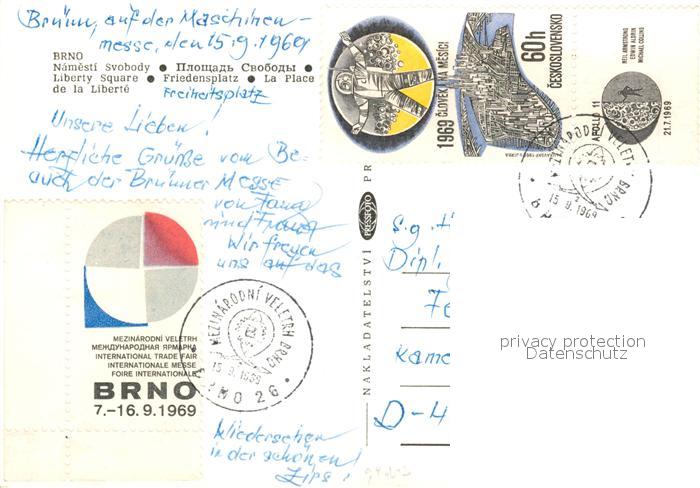 Brünn, auf der Maschinen-
messe, den 15.9.1969
BRNO
Náměstí Svobody ● Площадь Свободы ●
Liberty Square ● Friedensplatz ● La Place
de la Liberté
Freiheitsplatz
Unsere Lieben!
Herzliche Grüße vom Be-
such der Brünner Messe
von
und Franz
Wir freuen
uns auf das
Wiedersehen
in der schönen
Zips!
MEZINÁRODNÍ VELETRH
МЕЖДУНАРОДНАЯ ЯРМАРКА
INTERNATIONAL TRADE FAIR
INTERNATIONALE MESSE
FOIRE INTERNATIONALE
BRNO
7.–16.9.1969
MEZINÁRODNÍ VELETRH BRNO
15.9.1969
BRNO 26
1969 ČLOVĚK NA MĚSÍCI
60h
ČESKOSLOVENSKO
NEIL ARMSTRONG
EDWIN ALDRIN
MICHAEL COLLINS
APOLLO 11
21.7.1969
MEZINÁRODNÍ VELETRH BRNO
15.9.1969
NAKLADATELSTVÍ
PRESSFOTO
PR
S.g.
Dipl.
Kame
D-4
privacy protection
Datenschutz